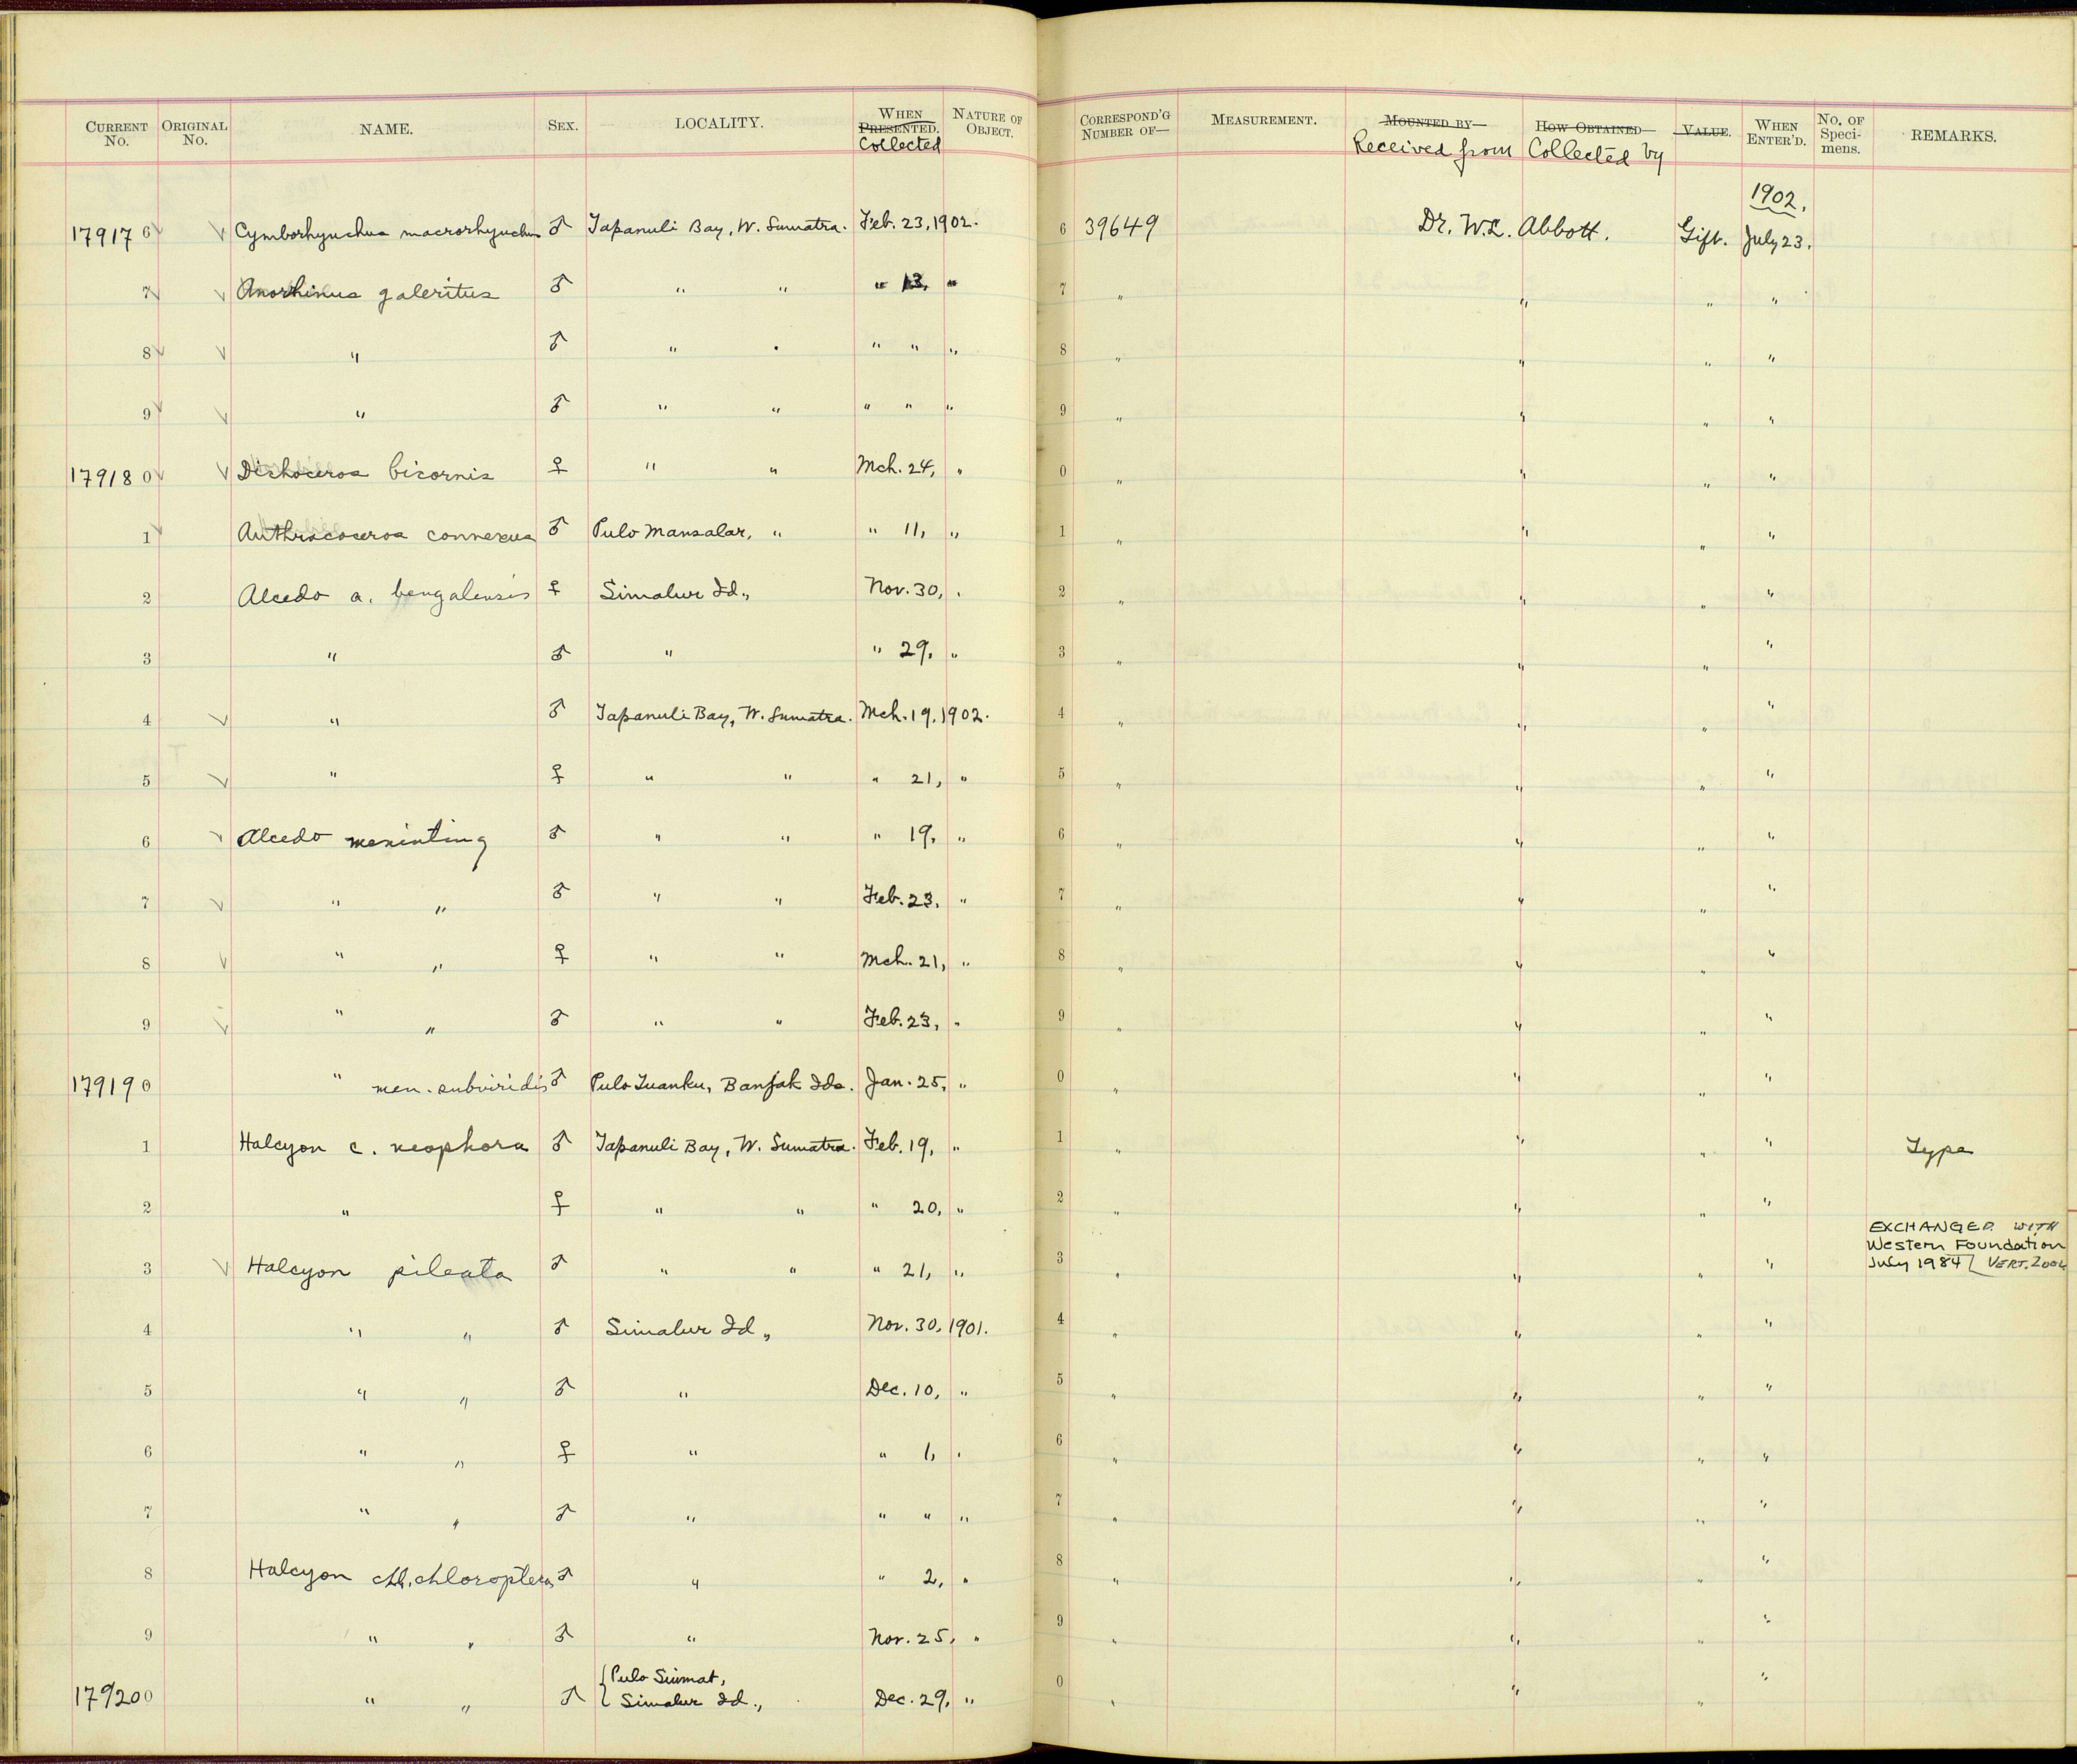 CURRENT No. ORIGINAL No. NAME. SEX. LOCALITY. WHEN PRESENTED. Collected NATURE OF OBJECT. CORRESPOND'G NUMBER OF— MEASUREMENT. MOUNTED BY— Received from HOW OBTAINED— Collected by VALUE. WHEN ENTER'D. No. OF Speci-mens. REMARKS.
1902.
179176 √ Cymborhynchus macrorhynchus ♂ Tapanuli Bay, W. Sumatra. Feb. 23, 1902. 6 39649 Dr. W.L. Abbott. Gift. July 23.
7 √ Anorhinus galeritus ♂ " " " 13, " 7 " " " "
8 √ " ♂ " " " " " 8 " " " "
9 √ " ♂ " " " " " 9 " " " "
179180 √ Dichoceros bicornis ♀ " " Mch. 24, " 0 " " " "
1 Anthracoceros connexus ♂ Pulo Mansalar, " " 11, " 1 " " " "
2 Alcedo a. bengalensis ♀ Simalur Id., Nov. 30, " 2 " " " "
3 " ♂ " " 29, " 3 " " " "
4 √ " ♂ Tapanuli Bay, W. Sumatra. Mch. 19, 1902. 4 " " " "
5 √ " ♀ " " " 21, " 5 " " " "
6 √ Alcedo meninting ♂ " " " 19, " 6 " " " "
7 √ " " ♂ " " Feb. 23, " 7 " " " "
8 √ " " ♀ " " Mch. 21, " 8 " " " "
9 √ " " ♂ " " Feb. 23, " 9 " " " "
179190 " men. subviridis ♂ Pulo Tuanku, Banjak Ids. Jan. 25, " 0 " " " "
1 Halcyon c. neophora ♂ Tapanuli Bay, W. Sumatra. Feb. 19, " 1 " " " " Type
2 " ♀ " " " 20, " 2 " " " "
EXCHANGED WITH
Western Foundation
3 √ Halcyon pileata ♂ " " " 21, " 3 " " " " July 1984 VERT. ZOOL
4 " " ♂ Simalur Id., Nov. 30, 1901. 4 " " " "
5 " " ♂ " Dec. 10, " 5 " " " "
6 " " ♀ " " 1, " 6 " " " "
7 " " ♂ " " " " 7 " " " "
8 Halcyon chl. chloroptera ♂ " " 2, " 8 " " " "
9 " " ♂ " Nov. 25, " 9 " " " "
Pulo Siumat,
179200 " " ♂ Simalur Id., Dec. 29, " 0 " " " "